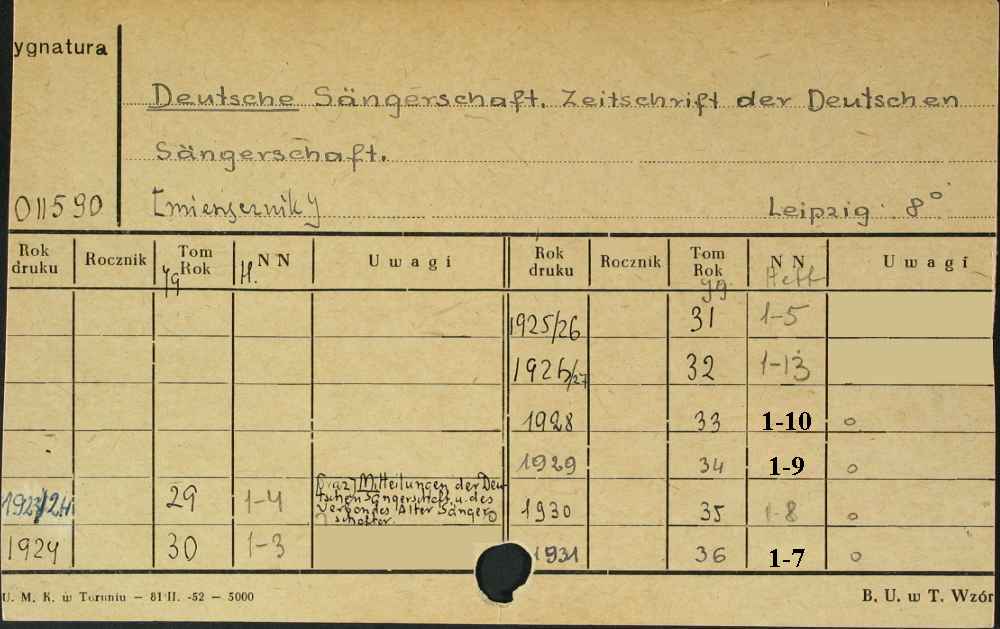 ygnatura
Deutsche Sängerschaft. Zeitschrift der Deutschen
Sängerschaft.
011590
Leipzig 8°
Rok druku Rocznik Tom Rok Jg N N H. Uwagi Rok druku Rocznik Tom Rok Jg N N Heft Uwagi
1925/26 31 1-5
1926/27 32 1-13
1928 33 1-10 o
1929 34 1-9 o
1923/24 29 1-4 Mitteilungen der Deu-
tschen Sängerschaft u. des
Verbandes Alter Sänger
schafter. 1930 35 1-8 o
1924 30 1-3 1931 36 1-7 o
U. M. K. w Toruniu — 81 II. -52 — 5000 B. U. w T. Wzór